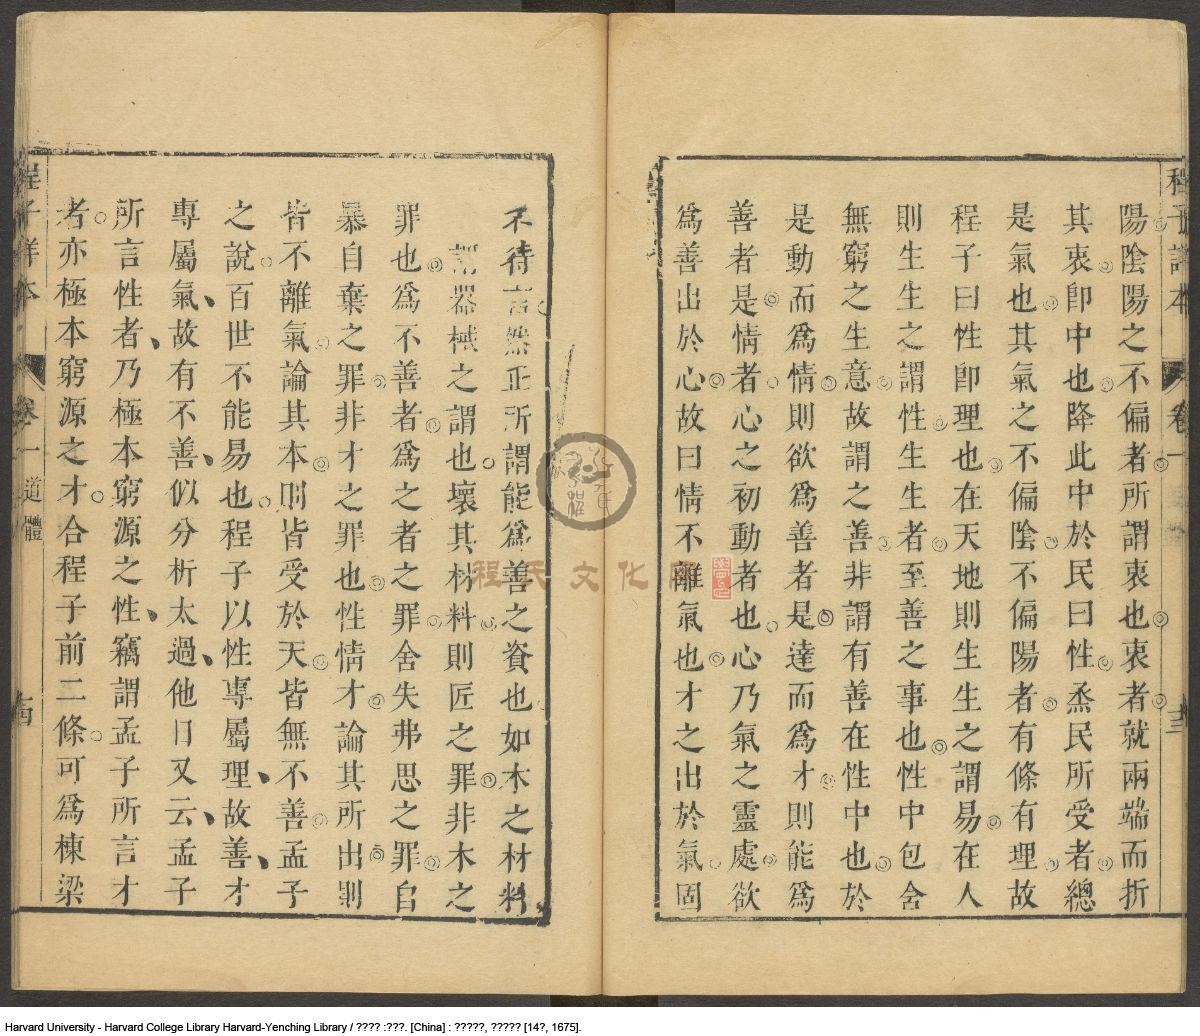 程子詳本 卷一 十三
陽陰陽之不偏者所謂衷也衷者就兩端而折
其衷卽中也降此中於民曰性烝民所受者總
是氣也其氣之不偏陰不偏陽者有條有理故
程子曰性卽理也在天地則生生之謂易在人
則生生之謂性生生者至善之事也性中包舍
無窮之生意故謂之善非謂有善在性中也於
是動而爲情則欲爲善者是達而爲才則能爲
善者是情者心之初動者也心乃氣之靈處欲
爲善出於心故曰情不離氣也才之出於氣固
不待言然正所謂能爲善之資也如木之材料
謂器械之謂也壞其材料則匠之罪非木之
罪也爲不善者爲之者之罪舍失弗思之罪自
暴自棄之罪非才之罪也性情才論其所出則
皆不離氣論其本則皆受於天皆無不善孟子
之說百世不能易也程子以性專屬理故善才
專屬氣故有不善似分析太過他日又云孟子
所言性者乃極本窮源之性竊謂孟子所言才
者亦極本窮源之才合程子前二條可爲棟梁
程子詳本 卷一 道體 十四
程氏文化
Harvard University - Harvard College Library Harvard-Yenching Library / ???? :???. [China] : ?????, ????? [14?, 1675].